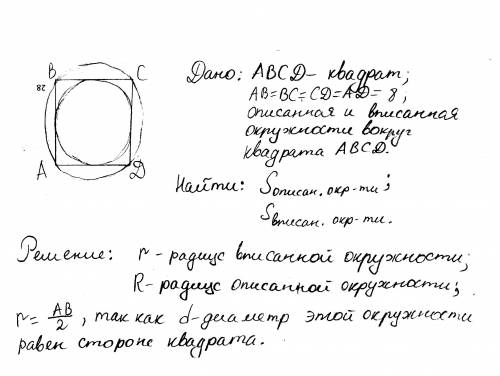 B C
Дано: ABCD - квадрат;
AB=BC=CD=AD= 8,
описанная и вписанная
окружности вокруг
квадрата ABCD.
A D
Найти: Sописан. окр-ти;
Sвписан. окр-ти.
Решение: r - радиус вписанной окружности;
R - радиус описанной окружности;
r= AB/2, так как d-диаметр этой окружности
равен стороне квадрата.